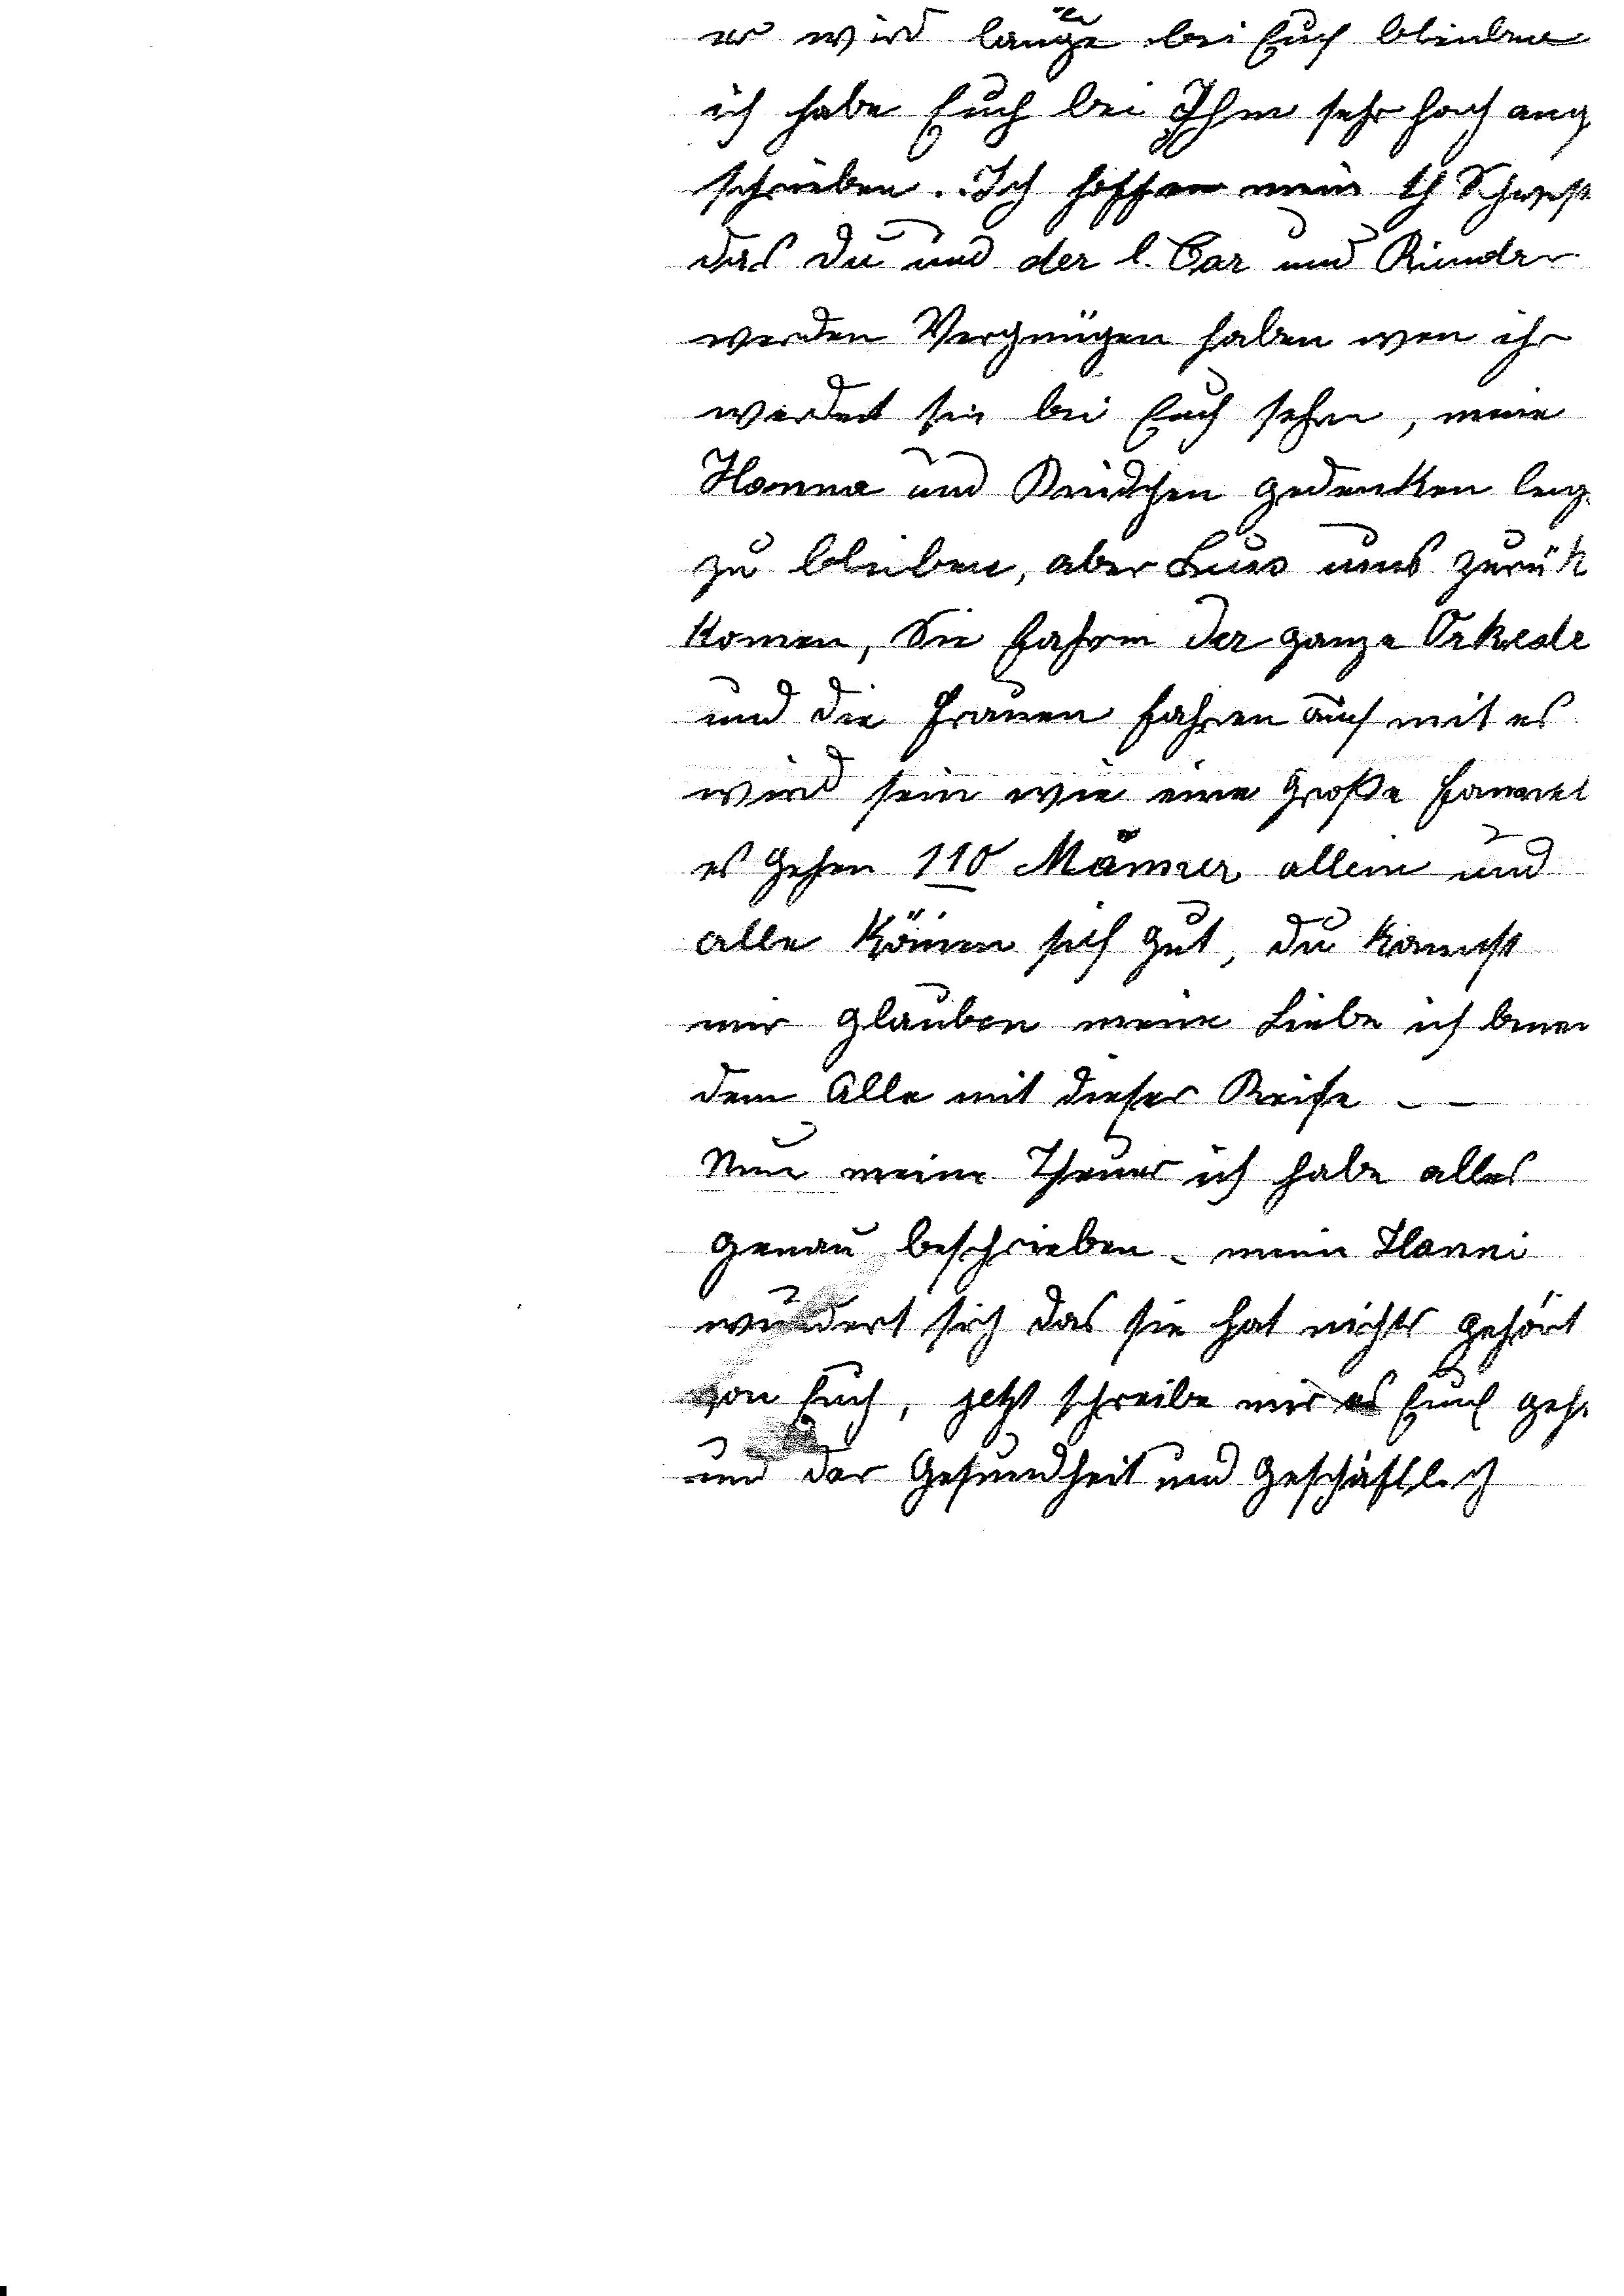 er wird lange bei Euch bleiben
ich habe Euch bei Ihm sehr hoch ang
schrieben. Ich hoffen mein th Schwest
das du und der l. Car und Kinder
werden Vergnügen haben wen ihr
werdet sie bei Euch sehen, meine
Hanna und gedenken leng
zu bleiben, aber mus zurük
komen, Sie fahren der ganze Orkeste
und die Frauen fahren auch mit es
wird sein wie eine große Fameel
es gehen 110 Männer allein und
alle könen sich gut, du kannst
mir glauben meine Liebe ich benei
dem Alle mit dieser Reise - -
Nun meine Theure ich habe alles
genau beschrieben - mein Hanni
wundert sich das sie hat nichts gehört
von Euch, jetzt schreibe mir es Euch geh
und der Gesundheit und Geschäftlich